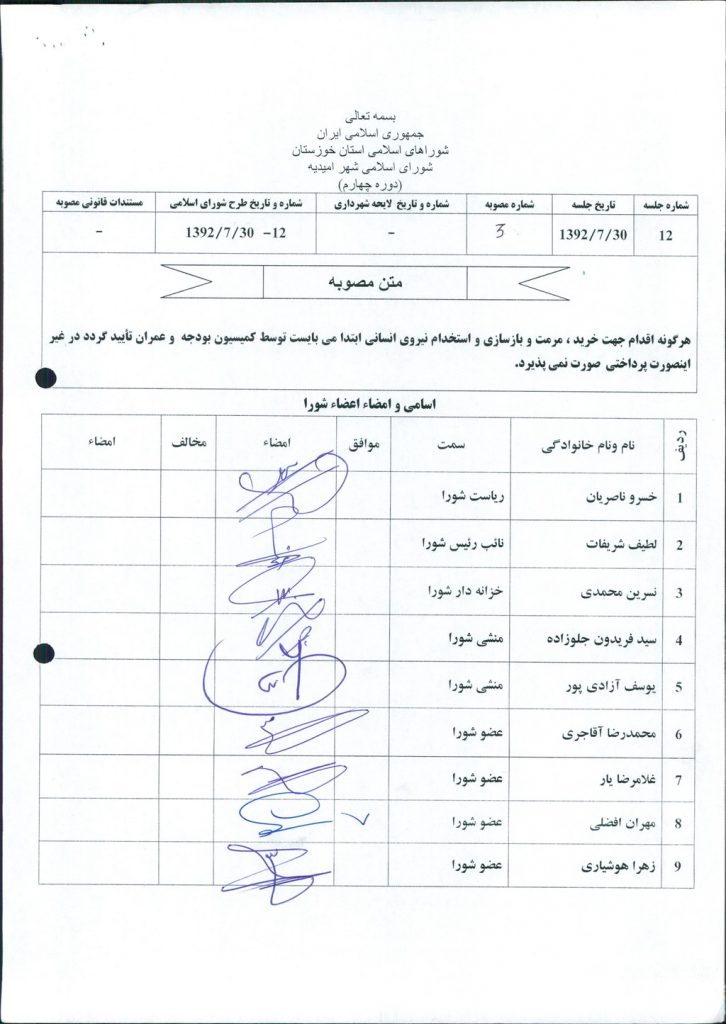 بسمه تعالی
جمهوری اسلامی ایران
شوراهای اسلامی استان خوزستان
شورای اسلامی شهر امیدیه
(دوره چهارم)
شماره جلسه تاریخ جلسه شماره مصوبه شماره و تاریخ لایحه شهرداری شماره و تاریخ طرح شورای اسلامی مستندات قانونی مصوبه
12 1392/7/30 3 - 12- 1392/7/30 -
متن مصوبه
هرگونه اقدام جهت خرید ، مرمت و بازسازی و استخدام نیروی انسانی ابتدا می بایست توسط کمیسیون بودجه و عمران تأیید گردد در غیر
اینصورت پرداختی صورت نمی پذیرد.
اسامی و امضاء اعضاء شورا
ردیف نام ونام خانوادگی سمت موافق امضاء مخالف امضاء
1 خسرو ناصریان ریاست شورا
2 لطیف شریفات نائب رئیس شورا
3 نسرین محمدی خزانه دار شورا
4 سید فریدون جلوزاده منشی شورا
5 یوسف آزادی پور منشی شورا
6 محمدرضا آقاجری عضو شورا
7 غلامرضا یار عضو شورا
8 مهران افضلی عضو شورا
9 زهرا هوشیاری عضو شورا